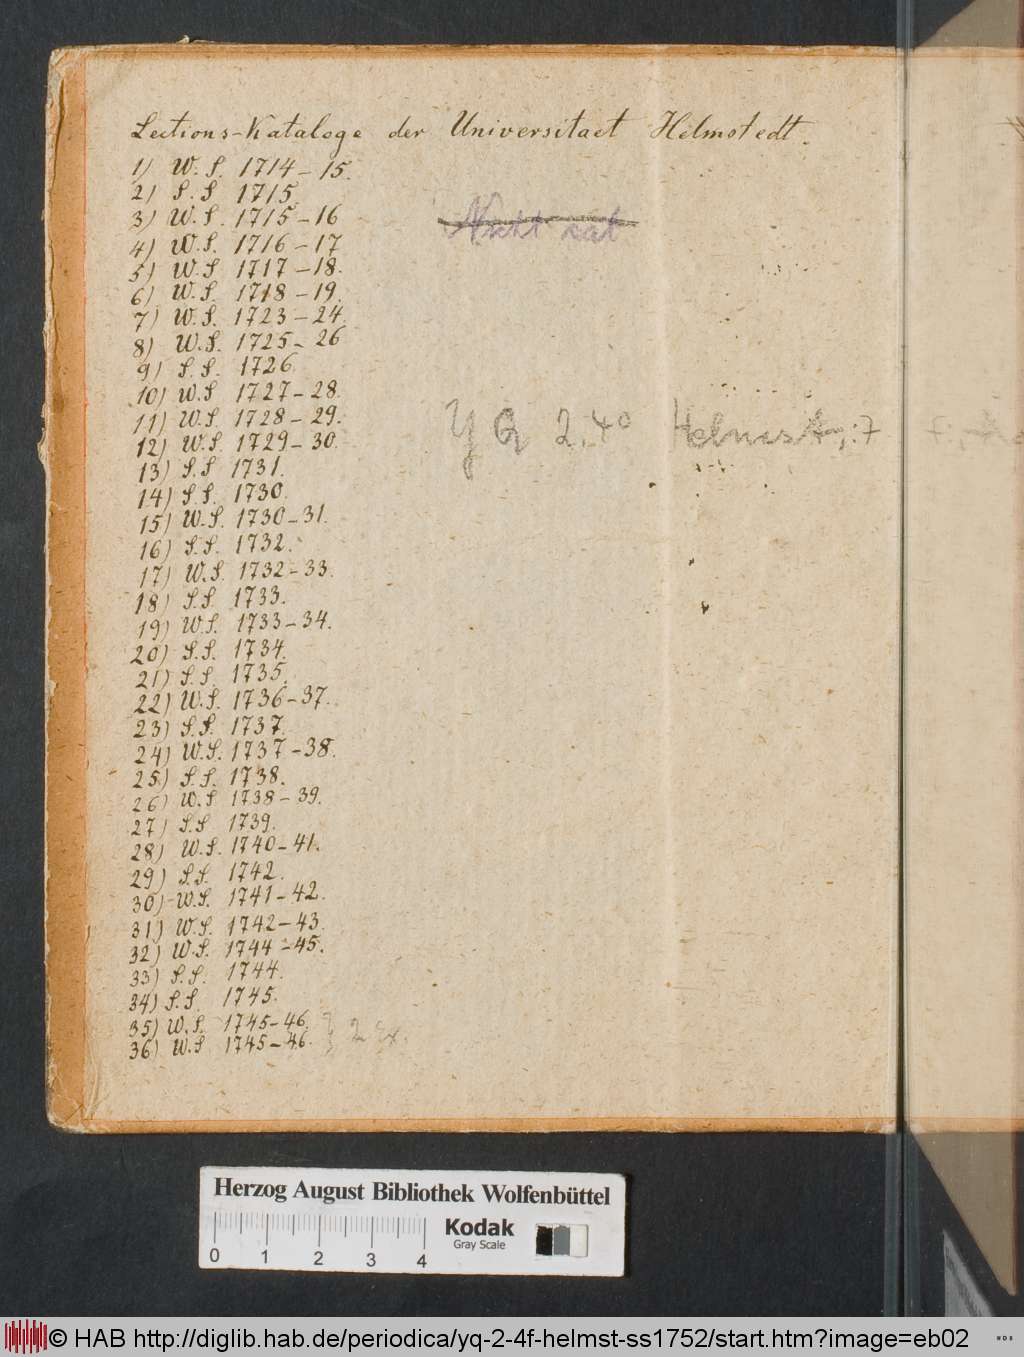 Lections-Kataloge der Universitaet Helmstedt.
1) W. S. 1714-15.
2) S. S 1715.
3) W. S. 1715-16
4) W. S. 1716-17
5) W. S 1717-18.
6) W. S. 1718-19.
7) W. S. 1723-24.
8) W. S. 1725-26
9) S. S. 1726.
10) W. S 1727-28.
11) W. S. 1728-29.
12) W. S. 1729-30.
13) S. S 1731.
14) S. S. 1730.
15) W. S. 1730-31.
16) S. S. 1732.
17) W. S. 1732-33.
18) S. S. 1733.
19) W. S. 1733-34.
20) S. S. 1734.
21) S. S. 1735.
22) W. S. 1736-37.
23) S. S. 1737.
24) W. S. 1737-38.
25) S. S. 1738.
26) W. S 1738-39.
27) S. S 1739.
28) W. S. 1740-41.
29) S. S. 1742.
30) W. S. 1741-42.
31) W. S. 1742-43.
32) W. S. 1744-45.
33) S. S. 1744.
34) S. S. 1745.
35) W. S. 1745-46.
36) W. S 1745-46. } 2 Ex.
Nicht kat
YQ 2.4° Helmst.:7
Herzog August Bibliothek Wolfenbüttel
0 1 2 3 4
Kodak
Gray Scale
© HAB http://diglib.hab.de/periodica/yq-2-4f-helmst-ss1752/start.htm?image=eb02
WDB